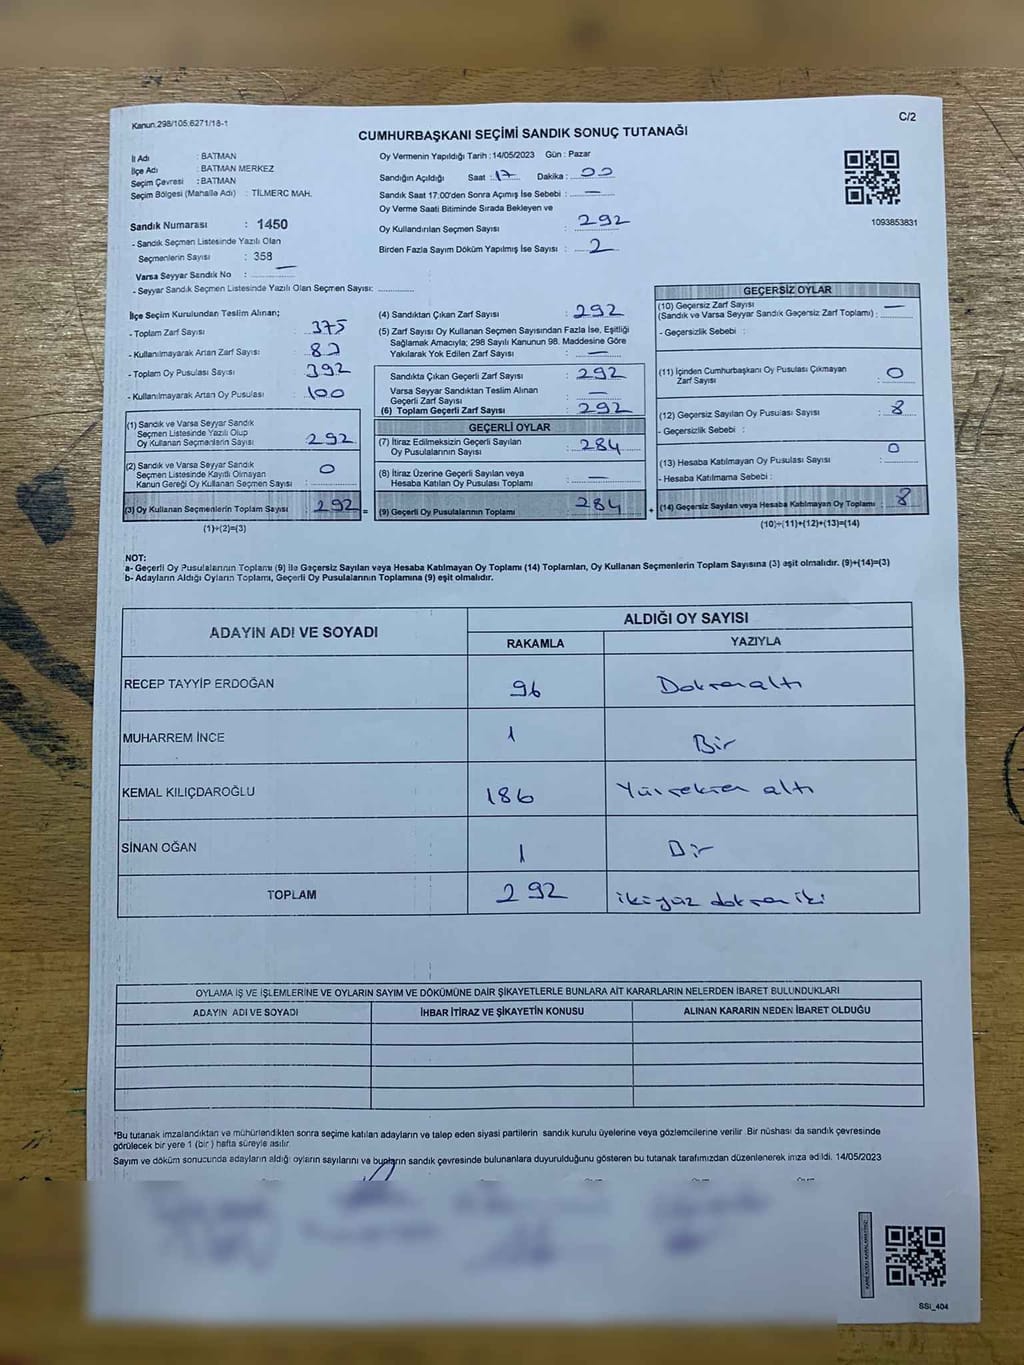 Kanun.298/105.6271/18-1
C/2
CUMHURBAŞKANI SEÇİMİ SANDIK SONUÇ TUTANAĞI
İl Adı : BATMAN
İlçe Adı : BATMAN MERKEZ
Seçim Çevresi : BATMAN
Seçim Bölgesi (Mahalle Adı) : TİLMERC MAH.
Sandık Numarası : 1450
- Sandık Seçmen Listesinde Yazılı Olan
Seçmenlerin Sayısı : 358
Varsa Seyyar Sandık No : —
- Seyyar Sandık Seçmen Listesinde Yazılı Olan Seçmen Sayısı:
Oy Vermenin Yapıldığı Tarih : 14/05/2023 Gün : Pazar
Sandığın Açıldığı Saat : 17 Dakika : 00
Sandık Saat 17:00'den Sonra Açımış İse Sebebi : —
Oy Verme Saati Bitiminde Sırada Bekleyen ve
Oy Kullandırılan Seçmen Sayısı : 292
Birden Fazla Sayım Döküm Yapılmış İse Sayısı : 2
1093853831
İlçe Seçim Kurulundan Teslim Alınan;
- Toplam Zarf Sayısı : 375
- Kullanılmayarak Artan Zarf Sayısı :
- Toplam Oy Pusulası Sayısı : 392
- Kullanılmayarak Artan Oy Pusulası : 100
(1) Sandık ve Varsa Seyyar Sandık
Seçmen Listesinde Yazılı Olup
Oy Kullanan Seçmenlerin Sayısı : 292
(2) Sandık ve Varsa Seyyar Sandık
Seçmen Listesinde Kayıtlı Olmayan
Kanun Gereği Oy Kullanan Seçmen Sayısı : 0
(3) Oy Kullanan Seçmenlerin Toplam Sayısı : 292 =
(1)+(2)=(3)
(4) Sandıktan Çıkan Zarf Sayısı : 292
(5) Zarf Sayısı Oy Kullanan Seçmen Sayısından Fazla İse, Eşitliği
Sağlamak Amacıyla; 298 Sayılı Kanunun 98. Maddesine Göre
Yakılarak Yok Edilen Zarf Sayısı : —
Sandıkta Çıkan Geçerli Zarf Sayısı : 292
Varsa Seyyar Sandıktan Teslim Alınan
Geçerli Zarf Sayısı : —
(6) Toplam Geçerli Zarf Sayısı : 292
GEÇERLİ OYLAR
(7) İtiraz Edilmeksizin Geçerli Sayılan
Oy Pusulalarının Sayısı : 284
(8) İtiraz Üzerine Geçerli Sayılan veya
Hesaba Katılan Oy Pusulası Toplamı : —
(9) Geçerli Oy Pusulalarının Toplamı : 284 +
GEÇERSİZ OYLAR
(10) Geçersiz Zarf Sayısı
(Sandık ve Varsa Seyyar Sandık Geçersiz Zarf Toplamı) : —
- Geçersizlik Sebebi :
(11) İçinden Cumhurbaşkanı Oy Pusulası Çıkmayan
Zarf Sayısı : 0
(12) Geçersiz Sayılan Oy Pusulası Sayısı : 8
- Geçersizlik Sebebi :
(13) Hesaba Katılmayan Oy Pusulası Sayısı : 0
- Hesaba Katılmama Sebebi :
(14) Geçersiz Sayılan veya Hesaba Katılmayan Oy Toplamı : 8
(10)+(11)+(12)+(13)=(14)
NOT:
a- Geçerli Oy Pusulalarının Toplamı (9) ile Geçersiz Sayılan veya Hesaba Katılmayan Oy Toplamı (14) Toplamları, Oy Kullanan Seçmenlerin Toplam Sayısına (3) eşit olmalıdır. (9)+(14)=(3)
b- Adayların Aldığı Oyların Toplamı, Geçerli Oy Pusulalarının Toplamına (9) eşit olmalıdır.
ADAYIN ADI VE SOYADI ALDIĞI OY SAYISI
RAKAMLA YAZIYLA
RECEP TAYYİP ERDOĞAN 96 Doksanaltı
MUHARREM İNCE 1 Bir
KEMAL KILIÇDAROĞLU 186 Yüzseksen altı
SİNAN OĞAN 1 Bir
TOPLAM 292 ikiyüz doksan iki
OYLAMA İŞ VE İŞLEMLERİNE VE OYLARIN SAYIM VE DÖKÜMÜNE DAİR ŞİKAYETLERLE BUNLARA AİT KARARLARIN NELERDEN İBARET BULUNDUKLARI
ADAYIN ADI VE SOYADI İHBAR İTİRAZ VE ŞİKAYETİN KONUSU ALINAN KARARIN NEDEN İBARET OLDUĞU
*Bu tutanak imzalandıktan ve mühürlendikten sonra seçime katılan adayların ve talep eden siyasi partilerin sandık kurulu üyelerine veya gözlemcilerine verilir. Bir nüshası da sandık çevresinde
görülecek bir yere 1 (bir ) hafta süreyle asılır.
Sayım ve döküm sonucunda adayların aldığı oyların sayılarını ve bunların sandık çevresinde bulunanlara duyurulduğunu gösteren bu tutanak tarafımızdan düzenlenerek imza edildi. 14/05/2023
SSİ_404